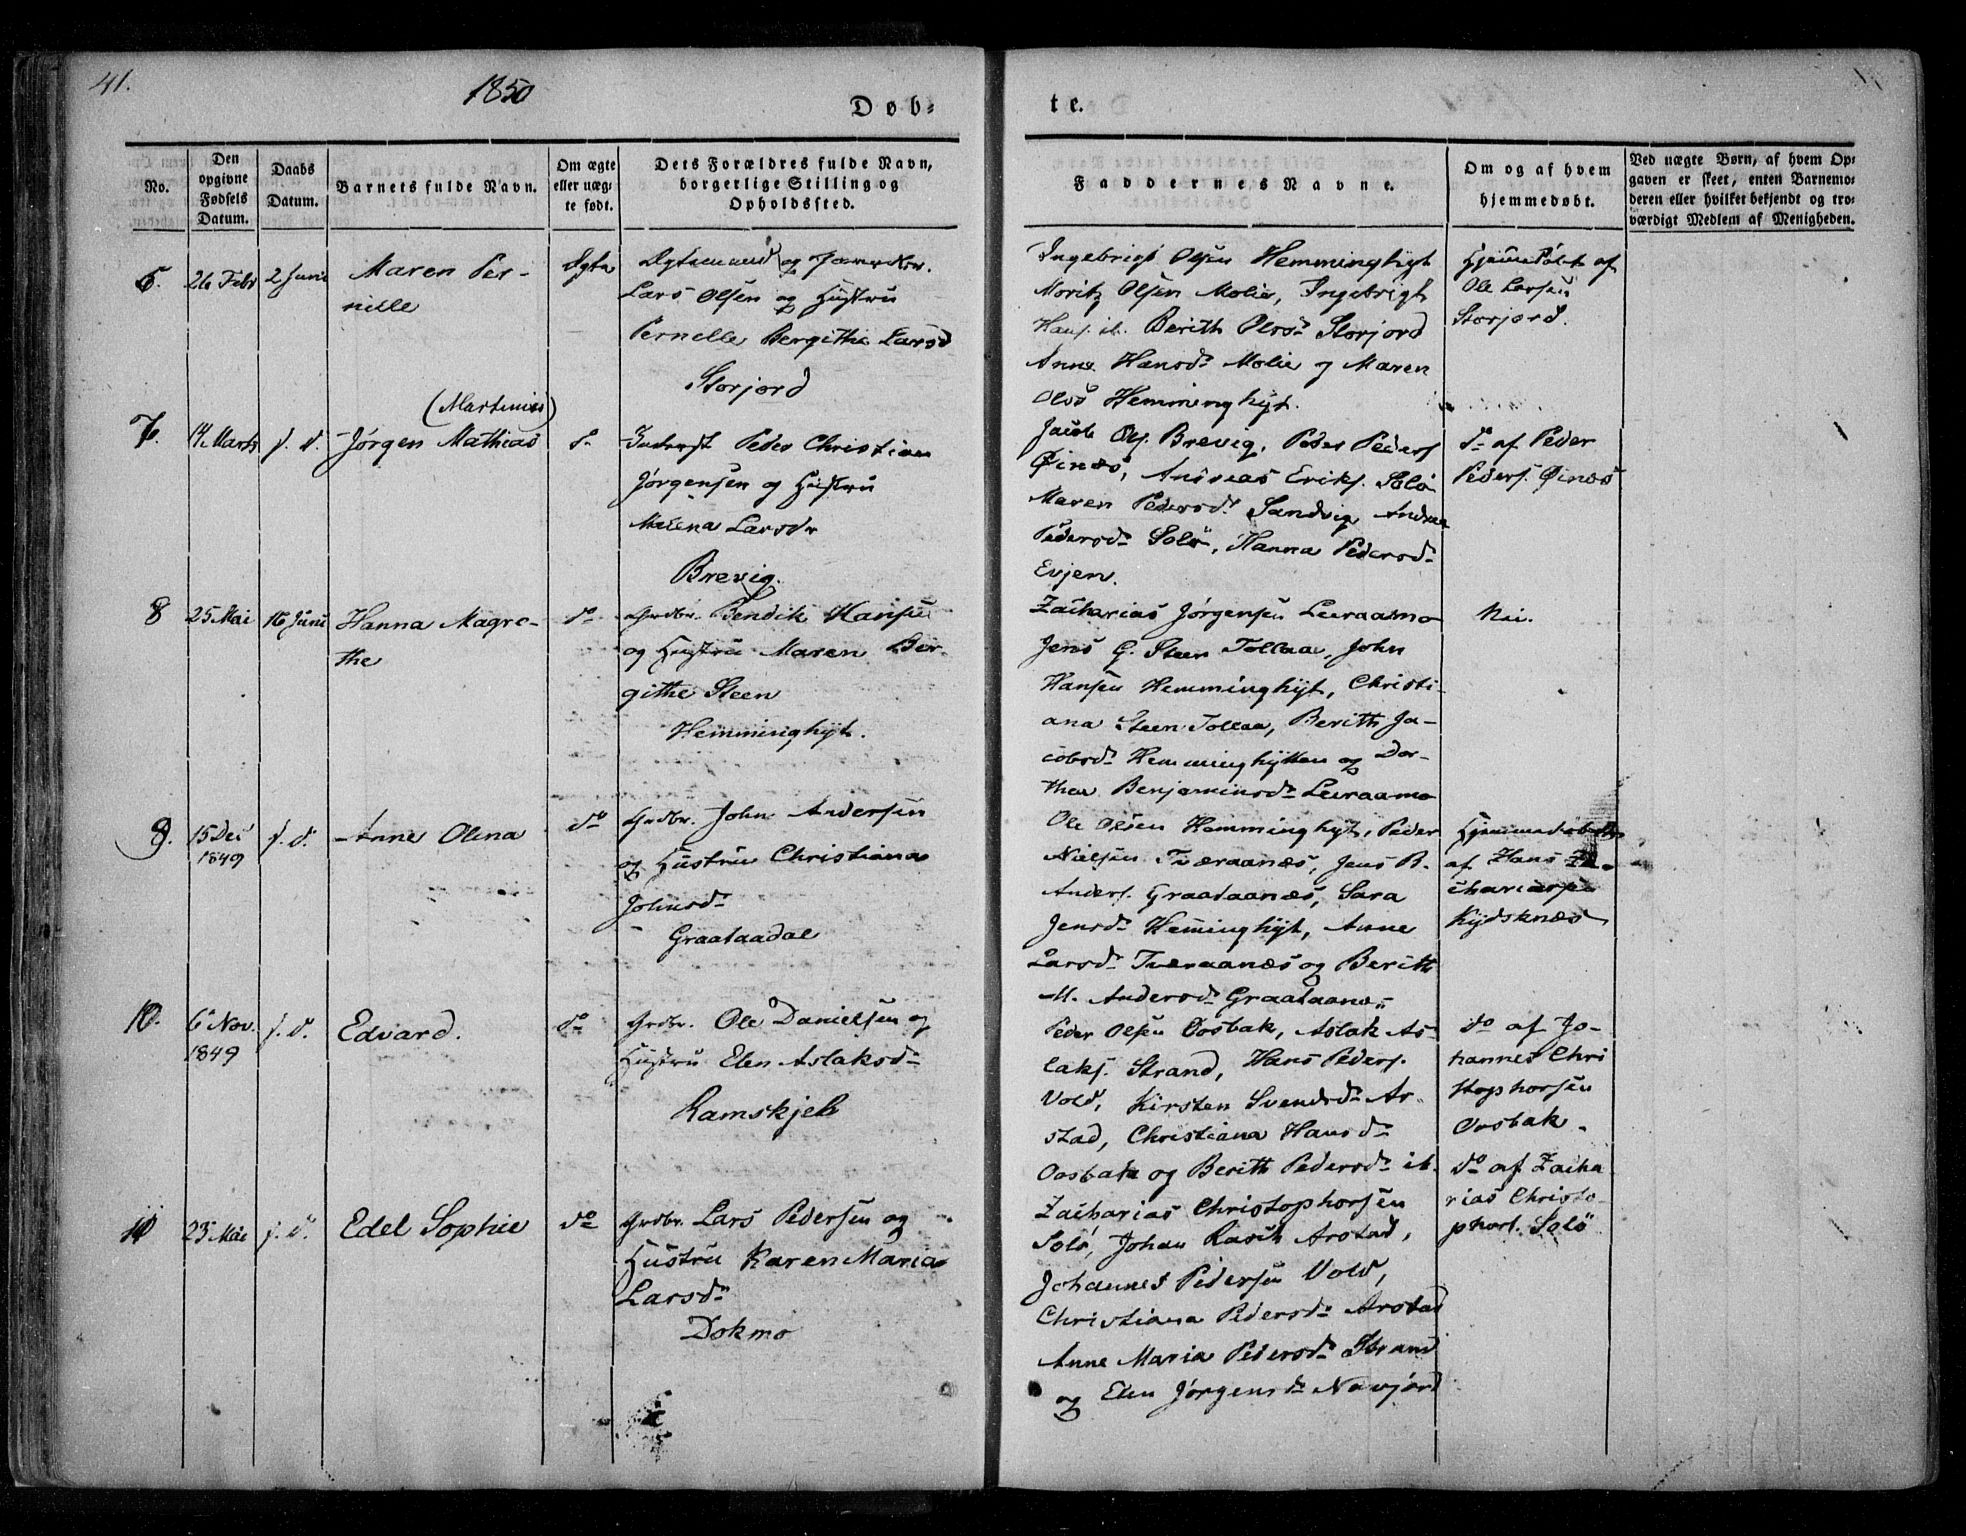 41.
1850
Døb-
te.
No.
Den opgivne Fødsels Datum.
Daabs Datum.
Barnets fulde Navn.
Om ægte eller uæg- te født.
Dets Forældres fulde Navn, borgerlige Stilling og Opholdssted.
Faddernes Navne.
Om og af hvem hjemmedøbt.
Ved uægte Børn, af hvem Op- gaven er skeet, enten Barnemo- deren eller hvilket bekjendt og tro- værdigt Medlem af Menigheden.
6. 26 Febr 2 Juni Maren Per-
nille
Ægte
og
Lars Olsen og Hustru
Pernelle Bergithe Larsd
Storjord
Ingebrigt Olsen Hemminghyt
Moritz Olsen Molie, Ingebrigt
Hans. ib. Berith Olsdr Storjord
Anne Hansdr Molie og Maren
Olsd Hemminghyt.
Hjemmedøbt af
Ole Larsen
Storjord.
7. 14 Marts s. d. (Martinus)
Jørgen Mathias
do
Inderst Peder Christian
Jørgensen og Hustru
Malena Larsdr
Brevig.
Jacob Ols. Brevig, Peder Peders
Øinæs, Andreas Eriks. Solø
Maren Pedersdr Sandvig Andrea
Pedersdr Solø, Hanna Pedersdr
Evjen.
do af Peder
Peders. Øinæs
8 25 Mai 16 Juni Hanna Magre-
the
do
Grdbr. Bendik Hansen
og Hustru Maren Ber-
githe Steen
Hemminghyt.
Zacharias Jørgensen Leeraamo
Jens G. Steen Tollaa, John
Hansen Hemminghyt, Christi-
ana Steen Tollaa, Berith Ja-
cobsdr Hemminghytten og Dor-
thea Benjaminsdr Leeraamo
Nei.
9. 15 Dec
1849
s. d. Anne Olina
do
Grdbr. John Andersen
og Hustru Christiana
Johnsdr
Graataadal
Ole Olsen Hemminghyt, Peder
Nielsen Tværaanæs, Jens B.
Anders. Graataanæs, Sara
Jensdr Heminghyt, Anne
Larsdr Tværaanæs og Berith
M. Andersdr Graataanæs
Hjemmedøbt
af Hans Za-
chariasen
Kydsknæs
10. 6 Nov.
1849
s. d. Edvard.
do
Grdbr. Ole Danielsen og
Hustru Elen Aslaksdr
Ramskjel
Peder Olsen Oosbak, Aslak As-
laks. Strand, Hans Peders.
Vold, Kirsten Svendsdr Ar-
stad, Christiana Hansdr
Oosbak og Berith Pedersdr ib.
do af Jo-
hannes Chri
stophorsen
Oosbak.
11 23 Mai s. d. Edel Sophie
do
Grdbr. Lars Pedersen og
Hustru Karen Maria
Larsdr
Dokmo
Zacharias Christophorsen
Solø, Johan Rasch Arstad,
Johannes Pedersen Vold,
Christiana Pedersdr Arstad
Anne Maria Pedersdr Strand
og Elen Jørgensdr Navjord
do af Zacha
rias Christo-
phors. Solø